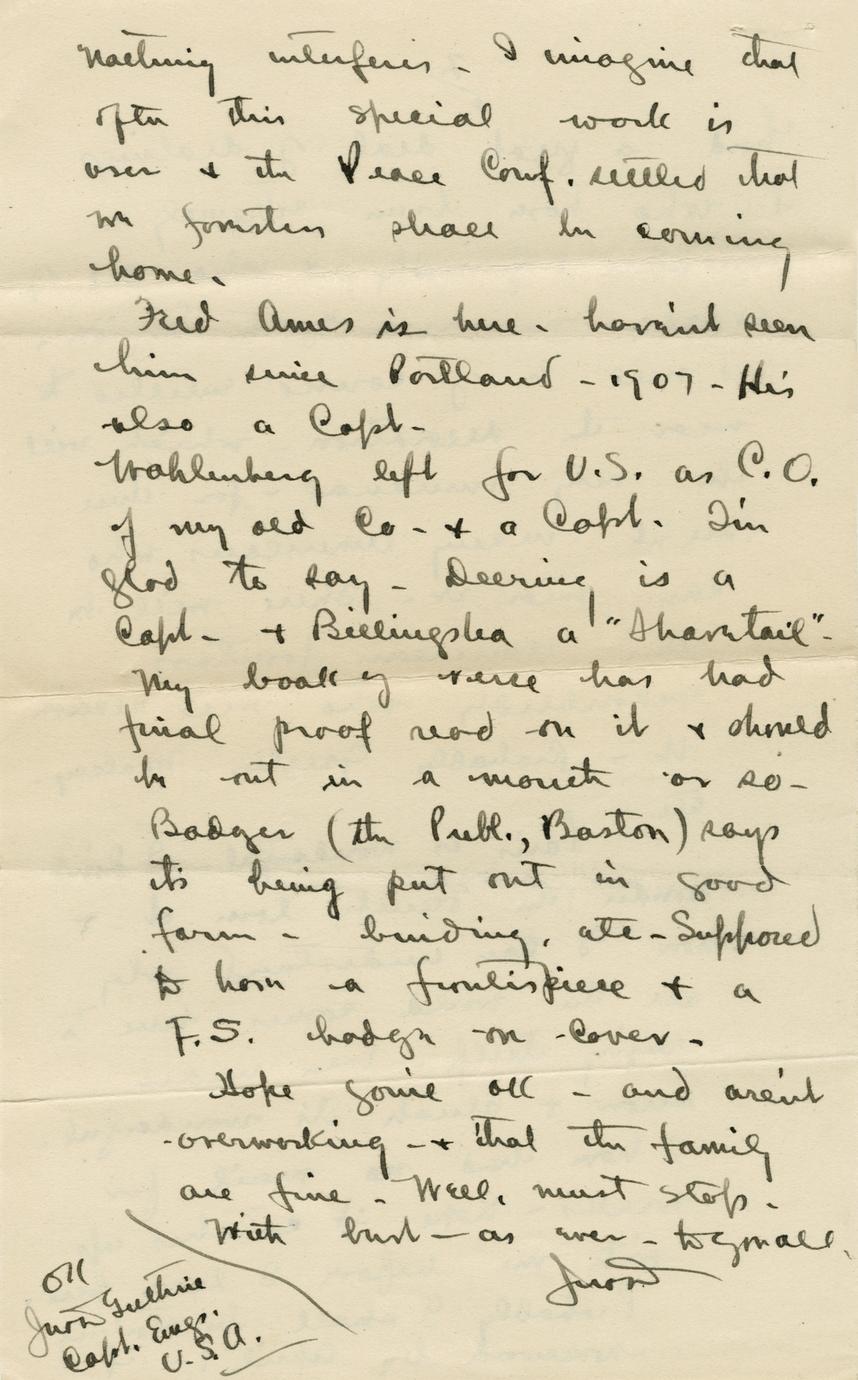 nothing interferes - I imagine that
after this special work is
over & the Peace Conf. settled that
we foresters shall be coming
home.
Fred Ames is here - haven't seen
him since Portland - 1907 - He's
also a Capt -
Wohlenberg left for U.S. as C.O.
of my old Co - & a Capt. I'm
glad to say - Deering is a
Capt - & Billingslea a "Shavetail" -
My book of verse has had
final proof read on it & should
be out in a month or so -
Badger (the Publ., Boston) says
it's being put out in good
form - binding, etc - Supposed
to have a frontispiece & a
F.S. badge on cover -
Hope you're OK - and aren't
overworking - & that the family
are fine - Well, must stop -
With best - as ever - to you all,
Jno D
OK
Jno D Guthrie
Capt. Engs.
U.S.A.